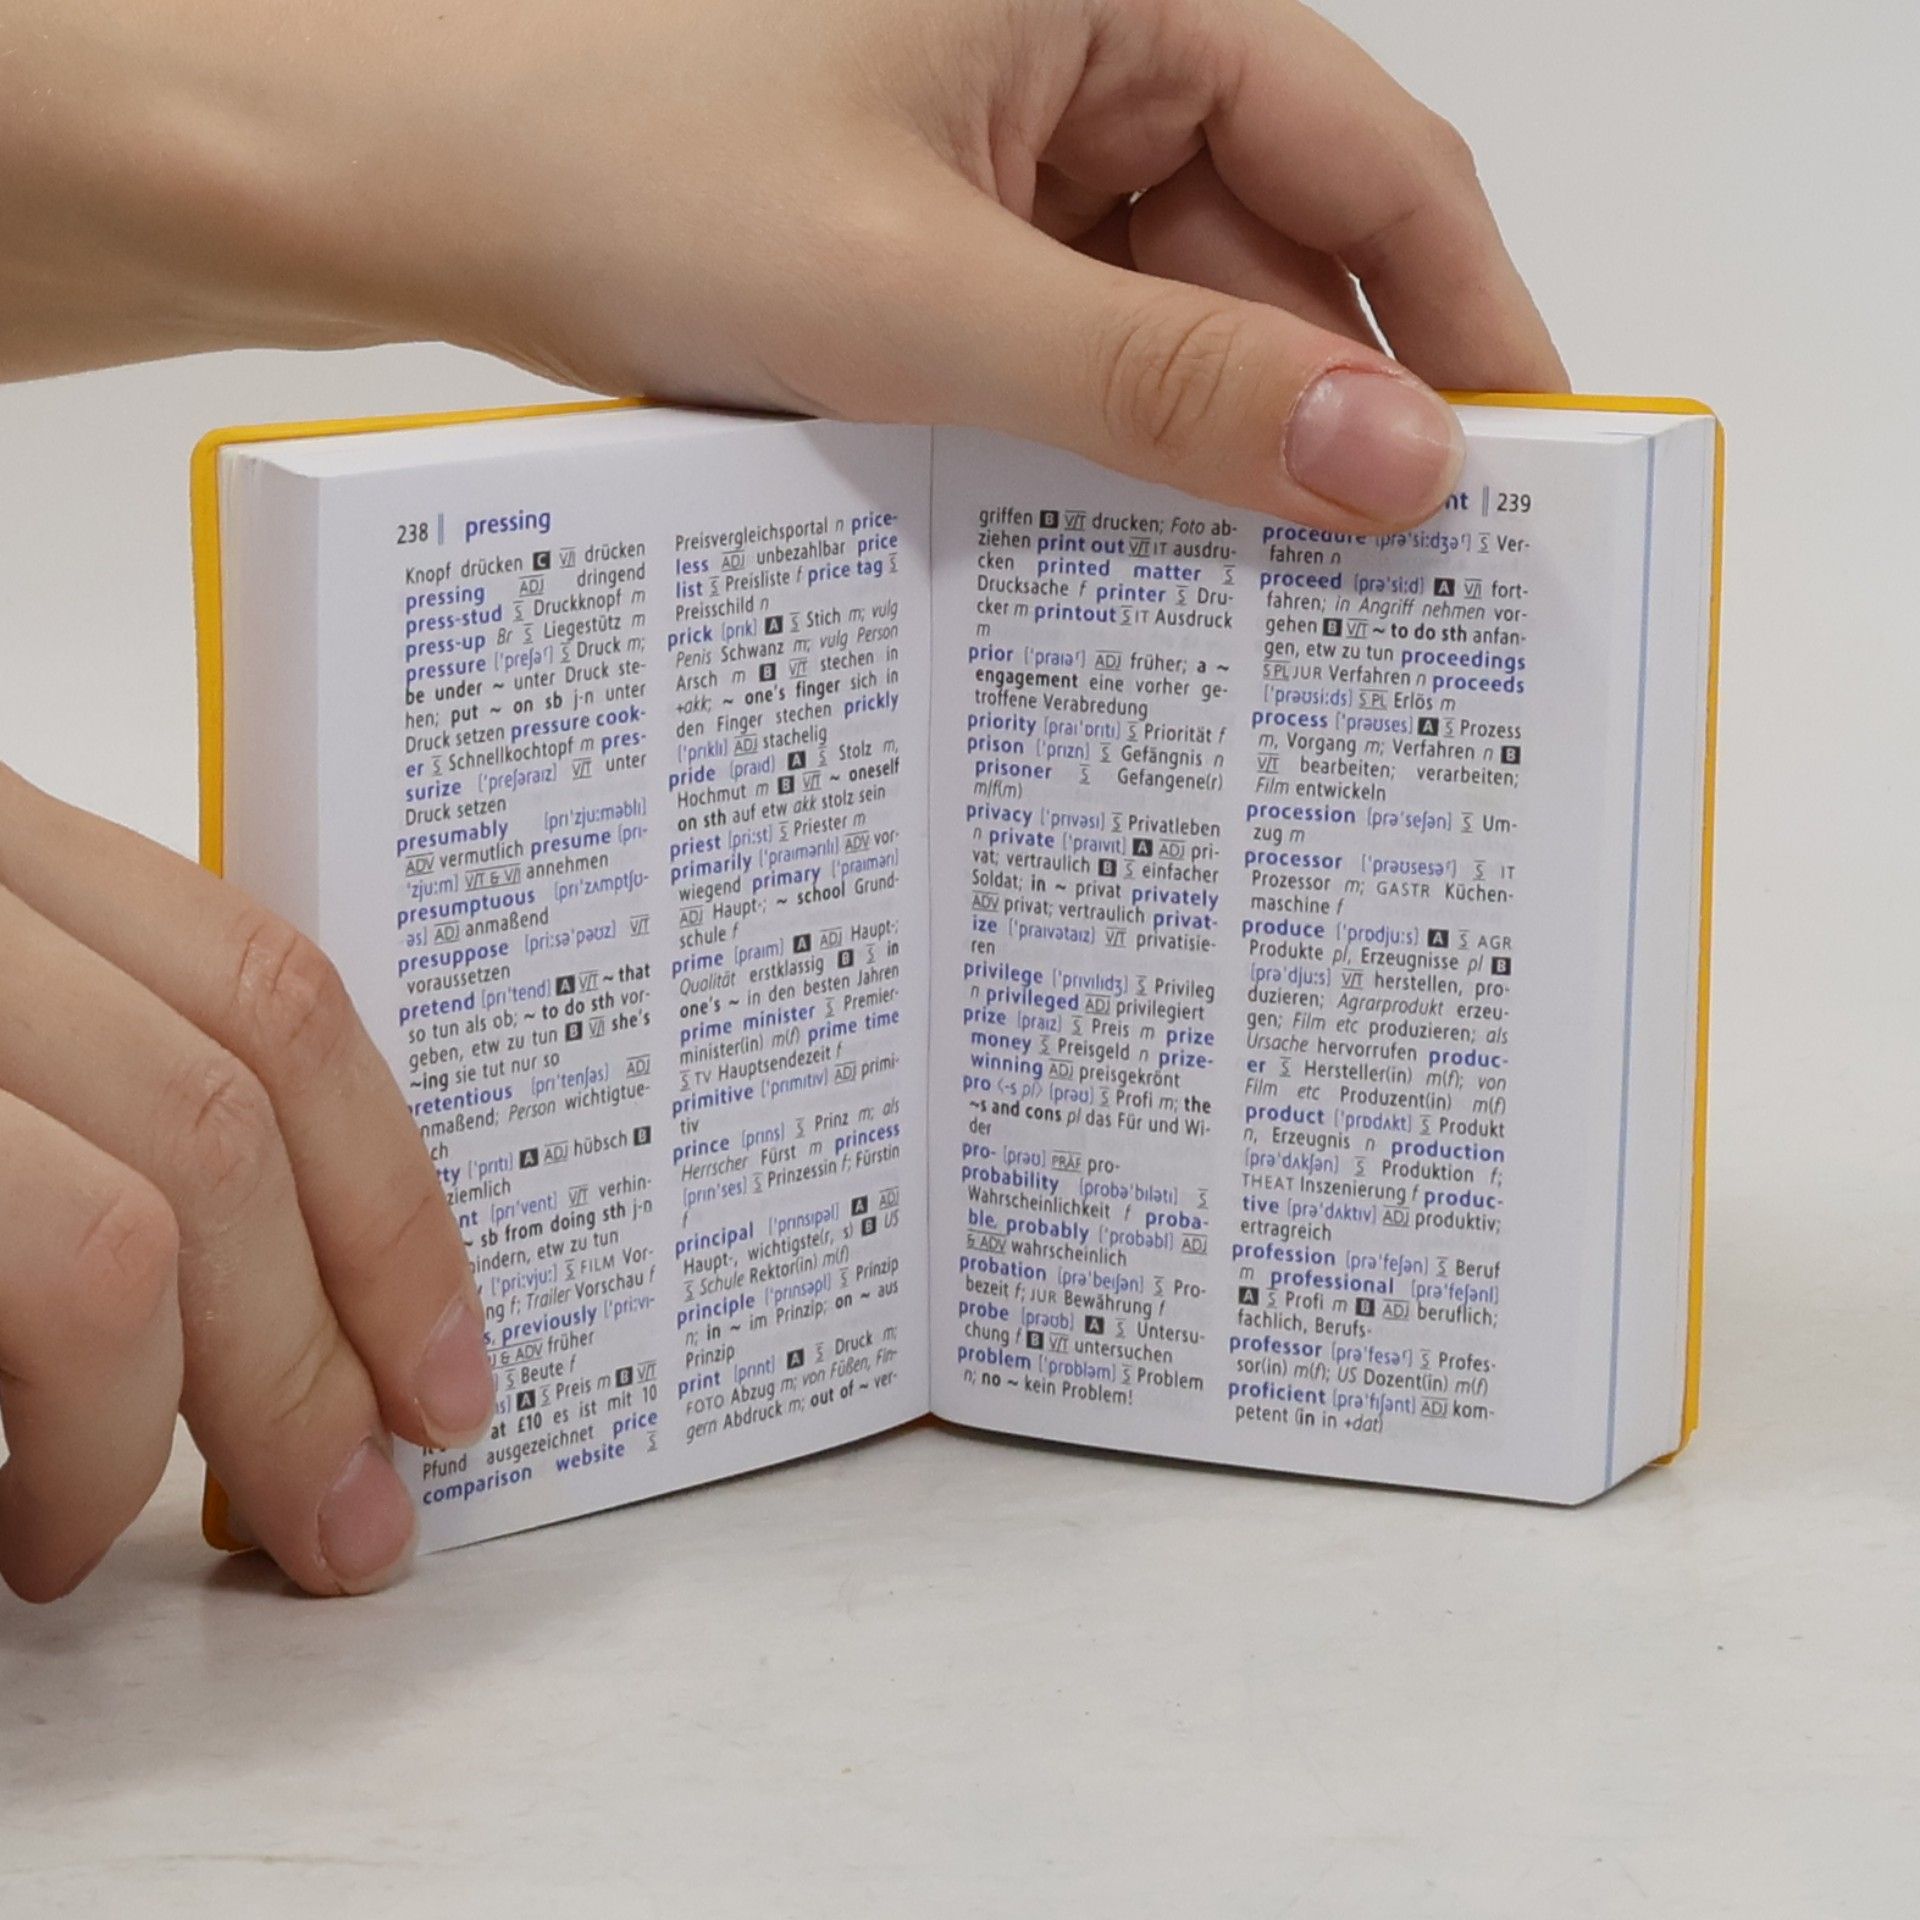 238 pressing
Knopf drücken C V/I drücken
pressing ADJ dringend
press-stud S Druckknopf m
press-up Br S Liegestütz m
pressure ['preʃəʳ] S Druck m;
be under ~ unter Druck ste-
hen; put ~ on sb j-n unter
Druck setzen pressure cook-
er S Schnellkochtopf m pres-
surize ['preʃəraɪz] V/T unter
Druck setzen
presumably [prɪ'zju:məblɪ]
ADV vermutlich presume [prɪ-
'zju:m] V/T & V/I annehmen
presumptuous [prɪ'zʌmptʃʊ-
əs] ADJ anmaßend
presuppose [pri:sə'pəʊz] V/T
voraussetzen
pretend [prɪ'tend] A V/T ~ that
so tun als ob; ~ to do sth vor-
geben, etw zu tun B V/I she's
~ing sie tut nur so
retentious [prɪ'tenʃəs] ADJ
nmaßend; Person wichtigtue-
ch
tty ['prɪtɪ] A ADJ hübsch B
ziemlich
nt [prɪ'vent] V/T verhin-
~ sb from doing sth j-n
indern, etw zu tun
['pri:vju:] S FILM Vor-
ng f; Trailer Vorschau f
s, previously ['pri:vɪ-
& ADV früher
S Beute f
A S Preis m B V/T
at £10 es ist mit 10
Pfund ausgezeichnet price
comparison website S
Preisvergleichsportal n price-
less ADJ unbezahlbar price
list S Preisliste f price tag S
Preisschild n
prick [prɪk] A S Stich m; vulg
Penis Schwanz m; vulg Person
Arsch m B V/T stechen in
+akk; ~ one's finger sich in
den Finger stechen prickly
['prɪklɪ] ADJ stachelig
pride [praɪd] A S Stolz m,
Hochmut m B V/T ~ oneself
on sth auf etw akk stolz sein
priest [pri:st] S Priester m
primarily ['praɪmərɪlɪ] ADV vor-
wiegend primary ['praɪmərɪ]
ADJ Haupt-; ~ school Grund-
schule f
prime [praɪm] A ADJ Haupt-;
Qualität erstklassig B S in
one's ~ in den besten Jahren
prime minister S Premier-
minister(in) m(f) prime time
S TV Hauptsendezeit f
primitive ['prɪmɪtɪv] ADJ primi-
tiv
prince [prɪns] S Prinz m; als
Herrscher Fürst m princess
[prɪn'ses] S Prinzessin f; Fürstin
f
principal ['prɪnsɪpəl] A ADJ
Haupt-, wichtigste(r, s) B US
S Schule Rektor(in) m(f)
principle ['prɪnsəpl] S Prinzip
n; in ~ im Prinzip; on ~ aus
Prinzip
print [prɪnt] A S Druck m;
FOTO Abzug m; von Füßen, Fin-
gern Abdruck m; out of ~ ver-
nt 239
griffen B V/T drucken; Foto ab-
ziehen print out V/T IT ausdru-
cken printed matter S
Drucksache f printer S Dru-
cker m printout S IT Ausdruck
m
prior ['praɪəʳ] ADJ früher; a ~
engagement eine vorher ge-
troffene Verabredung
priority [praɪ'ɒrɪtɪ] S Priorität f
prison ['prɪzn] S Gefängnis n
prisoner S Gefangene(r)
m/f(m)
privacy ['prɪvəsɪ] S Privatleben
n private ['praɪvɪt] A ADJ pri-
vat; vertraulich B S einfacher
Soldat; in ~ privat privately
ADV privat; vertraulich privat-
ize ['praɪvətaɪz] V/T privatisie-
ren
privilege ['prɪvɪlɪdʒ] S Privileg
n privileged ADJ privilegiert
prize [praɪz] S Preis m prize
money S Preisgeld n prize-
winning ADJ preisgekrönt
pro <-s pl> [prəʊ] S Profi m; the
~s and cons pl das Für und Wi-
der
pro- [prəʊ] PRÄF pro-
probability [prɒbə'bɪlətɪ] S
Wahrscheinlichkeit f proba-
ble, probably ['prɒbəbl] ADJ
& ADV wahrscheinlich
probation [prə'beɪʃən] S Pro-
bezeit f; JUR Bewährung f
probe [prəʊb] A S Untersu-
chung f B V/T untersuchen
problem ['prɒbləm] S Problem
n; no ~ kein Problem!
procedure [prə'si:dʒəʳ] S Ver-
fahren n
proceed [prə'si:d] A V/I fort-
fahren; in Angriff nehmen vor-
gehen B V/T ~ to do sth anfan-
gen, etw zu tun proceedings
S PL JUR Verfahren n proceeds
['prəʊsi:ds] S PL Erlös m
process ['prəʊses] A S Prozess
m, Vorgang m; Verfahren n B
V/T bearbeiten; verarbeiten;
Film entwickeln
procession [prə'seʃən] S Um-
zug m
processor ['prəʊsesəʳ] S IT
Prozessor m; GASTR Küchen-
maschine f
produce ['prɒdju:s] A S AGR
Produkte pl, Erzeugnisse pl B
[prə'dju:s] V/T herstellen, pro-
duzieren; Agrarprodukt erzeu-
gen; Film etc produzieren; als
Ursache hervorrufen produc-
er S Hersteller(in) m(f); von
Film etc Produzent(in) m(f)
product ['prɒdʌkt] S Produkt
n, Erzeugnis n production
[prə'dʌkʃən] S Produktion f;
THEAT Inszenierung f produc-
tive [prə'dʌktɪv] ADJ produktiv;
ertragreich
profession [prə'feʃən] S Beruf
m professional [prə'feʃənl]
A S Profi m B ADJ beruflich;
fachlich, Berufs-
professor [prə'fesəʳ] S Profes-
sor(in) m(f); US Dozent(in) m(f)
proficient [prə'fɪʃənt] ADJ kom-
petent (in in +dat)